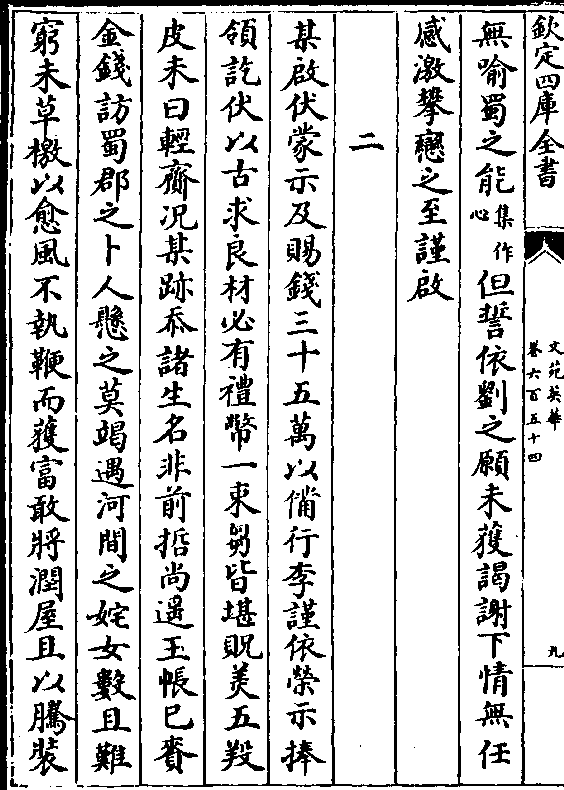 欽定四庫全書
文苑英華
卷六百五十四
九
無喻蜀之能集作心但誓依劉之願未獲謁謝下情無任
感激攀戀之至謹啟
二
某啟伏蒙示及賜錢三十五萬以備行李謹依榮示捧
領訖伏以古求良材必有禮幣一束芻皆堪貺美五羖
皮未曰輕齎況某跡忝諸生名非前哲尚遥玉帳已賚
金錢訪蜀郡之卜人懸之莫竭遇河間之姹女數且難
窮未草檄以愈風不執鞭而獲富敢將潤屋且以騰裝